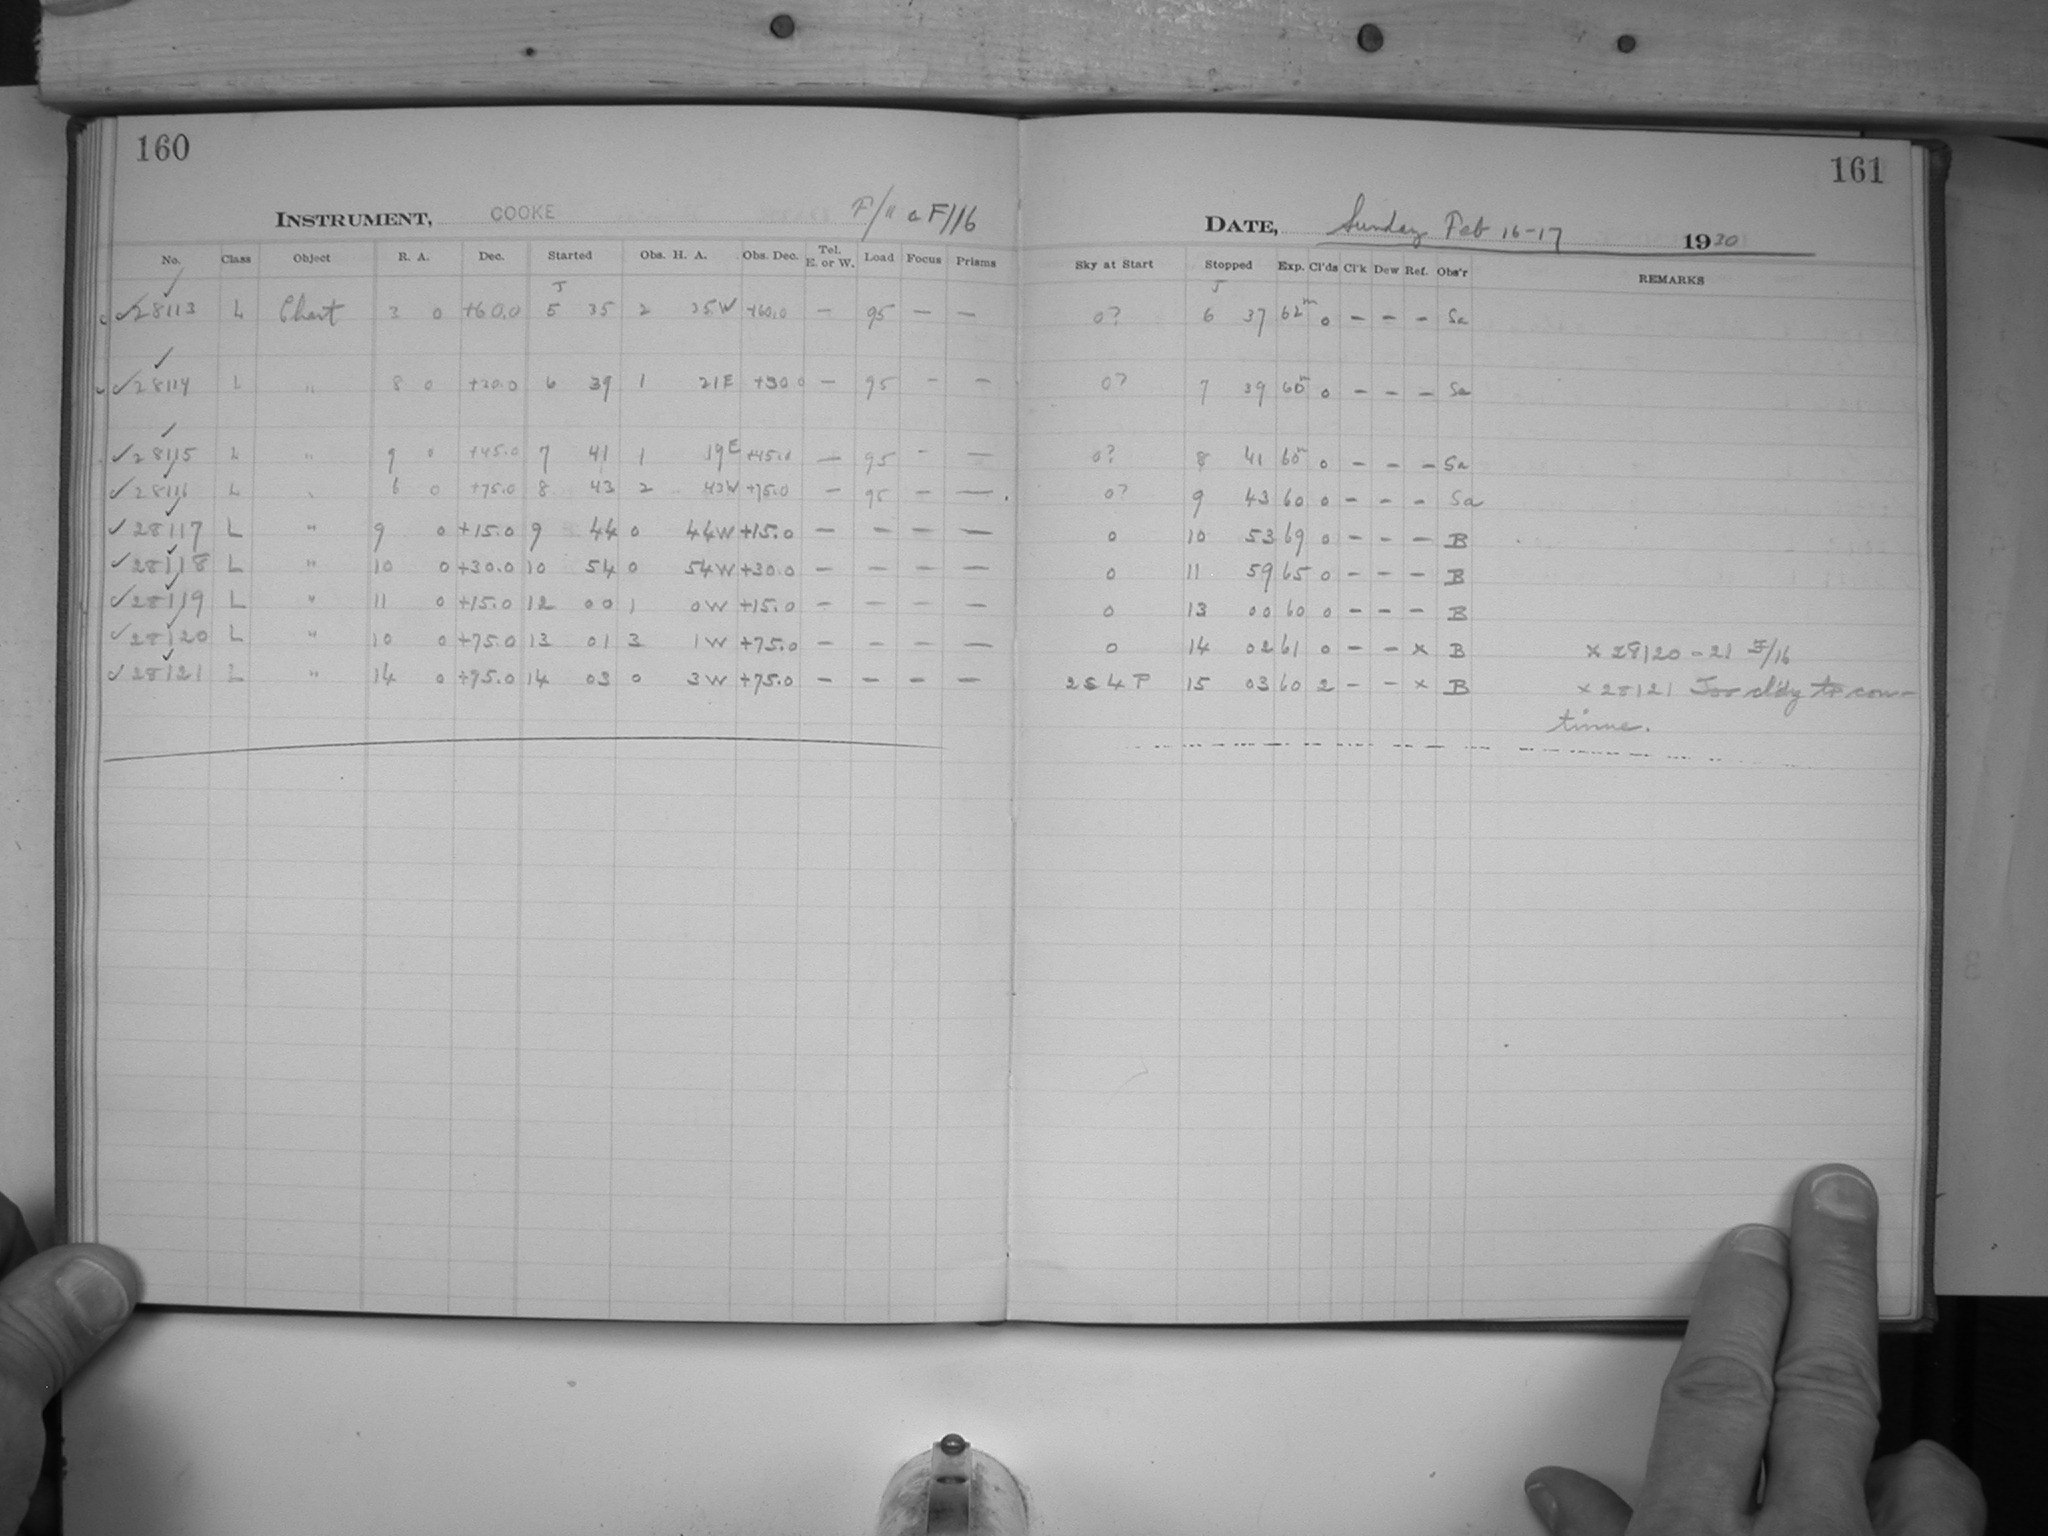 160
INSTRUMENT, COOKE F/11 a F/16
No. Class Object R. A. Dec. Started Obs. H. A. Obs. Dec. Tel. E. or W. Load Focus Prisms
✓28113 L Chart 3 0 +60.0 5 35 2 35W +60.0 — 95 — —
✓28114 L " 8 0 +30.0 6 39 1 21E +30.0 — 95 - —
✓28115 L " 9 0 +45.0 7 41 1 19E +45.0 — 95 - —
✓28116 L " 6 0 +75.0 8 43 2 43W +75.0 — 95 — —
✓28117 L " 9 0 +15.0 9 44 0 44W +15.0 — — — —
✓28118 L " 10 0 +30.0 10 54 0 54W +30.0 — — — —
✓28119 L " 11 0 +15.0 12 00 1 0W +15.0 — — — —
✓28120 L " 10 0 +75.0 13 01 3 1W +75.0 — — — —
✓28121 L " 14 0 +75.0 14 03 0 3W +75.0 — — — —
161
DATE, Sunday Feb 16-17 1930
Sky at Start Stopped Exp. Cl'ds Cl'k Dew Ref. Obs'r REMARKS
0? 6 37 62m 0 — — — Sa
0? 7 39 60m 0 — — — Sa
0? 8 41 60m 0 — — — Sa
0? 9 43 60 0 — — — Sa
0 10 53 69 0 — — — B
0 11 59 65 0 — — — B
0 13 00 60 0 — — — B
0 14 02 61 0 — — x B x 28120-21 F/16
2s4P 15 03 60 2 — — x B x 28121 Too cl'dy to con-
tinue.